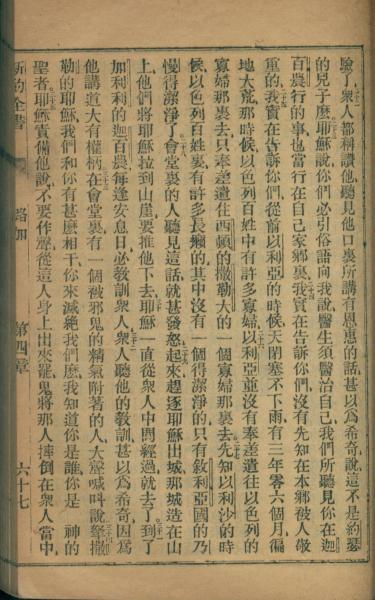 驗了、衆人都稱讚他、聽見他口裏所講有恩惠的話、甚以爲希奇、說、這不是約瑟
的兒子麼、耶穌說、你們必引俗語向我說、醫生須醫治自己、我們所聽見你在迦
百農行的事、也當行在自己家鄉裏、我實在告訴你們、沒有先知在本鄉被人敬
重的、我實在告訴你們、從前以利亞的時候、天閉塞不下雨、有三年零六個月、徧
地大荒、那時候以色列百姓中有許多寡婦、以利亞並沒有奉差遣往以色列的
寡婦那裏去、只奉差遣往西頓的撒勒大的一個寡婦那裏去、先知以利沙的時
候、以色列百姓裏有許多長癩的、其中沒有一個得潔淨的、只有敘利亞國的乃
慢得潔淨了、會堂裏的人聽見這話、就甚發怒、起來趕逐耶穌出城、那城造在山
上、他們將耶穌拉到山崖、要推他下去、耶穌一直從衆人中間經過就去了、到了
加利利的迦百農、每逢安息日、必教訓衆人、衆人聽他的教訓、甚以爲希奇、因爲
他講道大有權柄、在會堂裏有一個被邪鬼的精氣附著的人、大聲喊叫說、拏撒
勒的耶穌、我們和你有甚麼相干、你來滅絕我們麼、我知道你是誰、你是 神的
聖者、耶穌責備他說、不要作聲、從這人身上出來罷、鬼將那人摔倒在衆人當中、
新約全書 路加 第四章 六十七